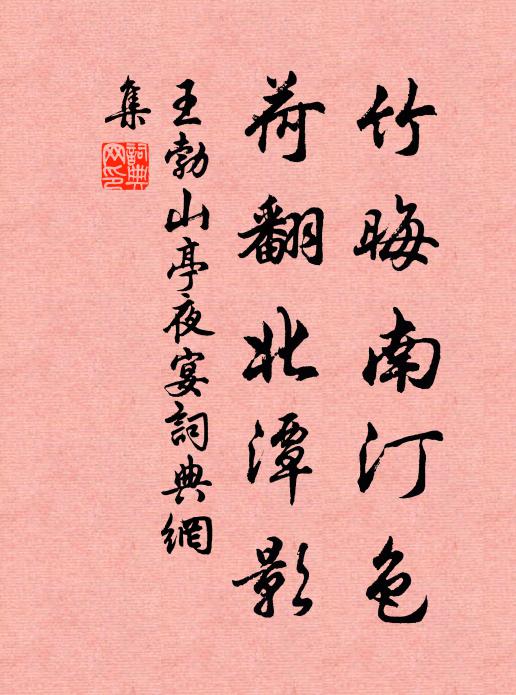 竹晦南汀色
荷翻北潭影
王勃山亭夜宴詞典網
集
詞典網印